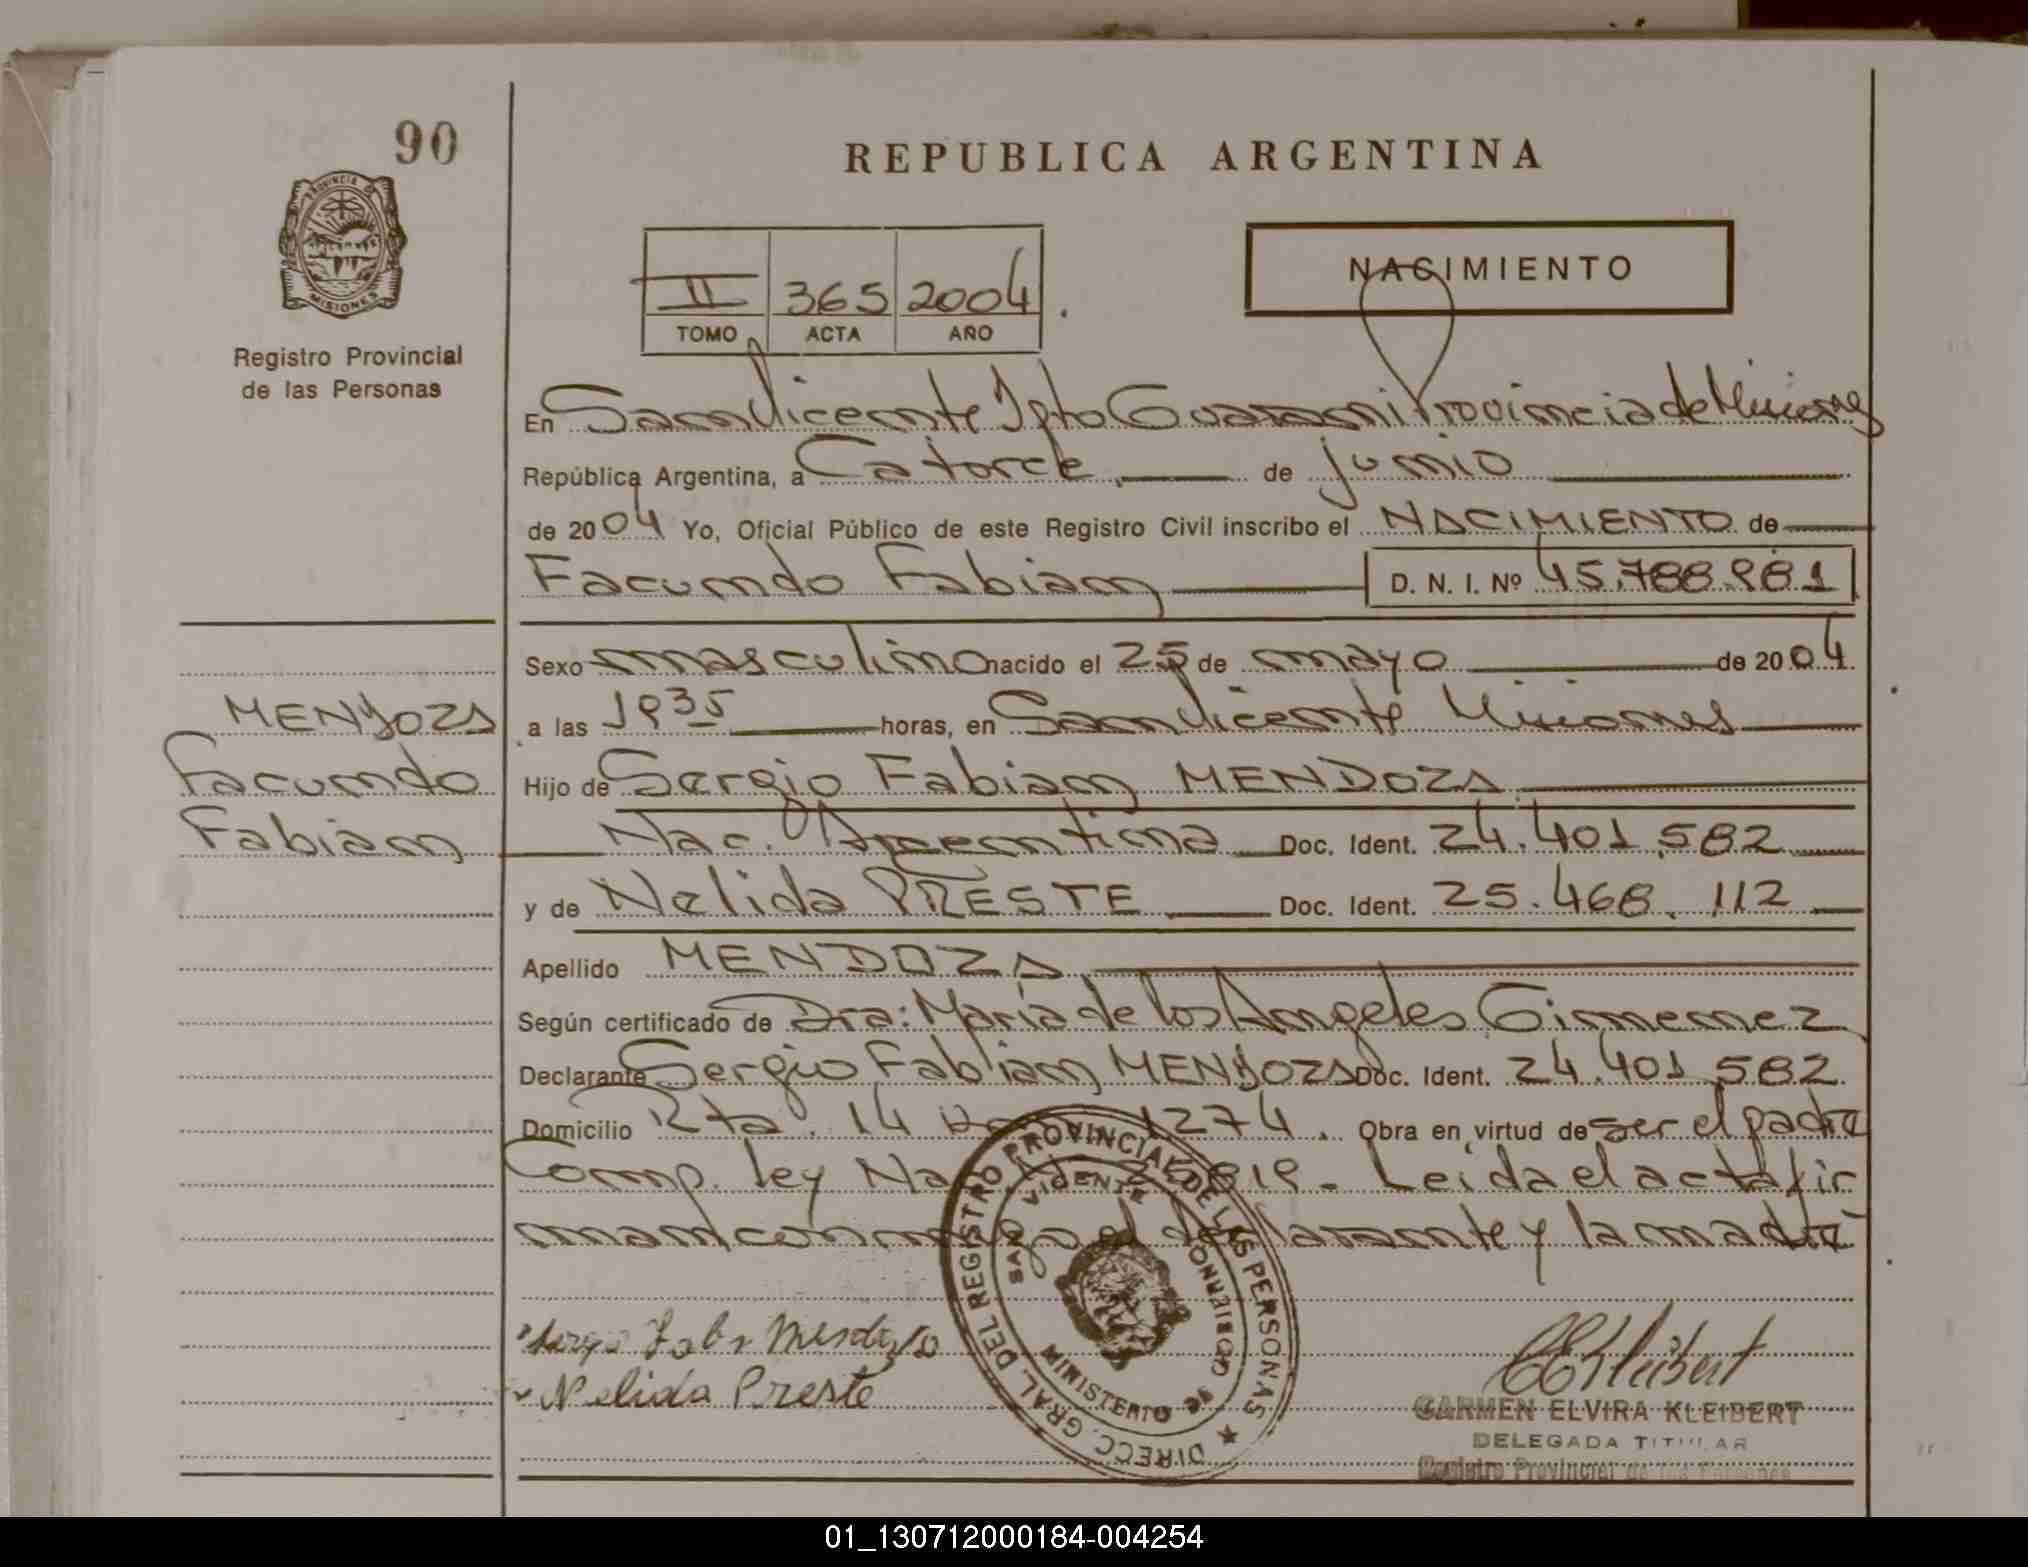 90
REPUBLICA ARGENTINA
PROVINCIA DE
MISIONES
Registro Provincial
de las Personas
II 365 2004
TOMO ACTA AÑO
NACIMIENTO
En San Vicente Dpto Guarani Provincia de Misiones
República Argentina, a Catorce de junio
de 2004 Yo, Oficial Público de este Registro Civil inscribo el NACIMIENTO de
Facundo Fabian D. N. I. Nº 45.788.981
Sexo masculino nacido el 25 de mayo de 2004
MENDOZA
Facundo
Fabian
a las 1935 horas, en San Vicente Misiones
Hijo de Sergio Fabian MENDOZA
Nac. Argentina Doc. Ident. 24.401.582
y de Nelida PRESTE Doc. Ident. 25.468.112
Apellido MENDOZA
Según certificado de Dra: María de los Angeles Gimenez
Declarante Sergio Fabian MENDOZA Doc. Ident. 24.401.582
Domicilio Rta. 14 1274. Obra en virtud de ser el padre
Comp. ley Leida el acta fir
man conmigo el declarante y la madre
Nelida Preste
DIRECC. GRAL. DEL REGISTRO PROVINCIAL DE LAS PERSONAS
SAN VICENTE
MINISTERIO DE GOBIERNO
CEKleibert
CARMEN ELVIRA KLEIBERT
DELEGADA TITULAR
Registro Provincial de las Personas
01_130712000184-004254